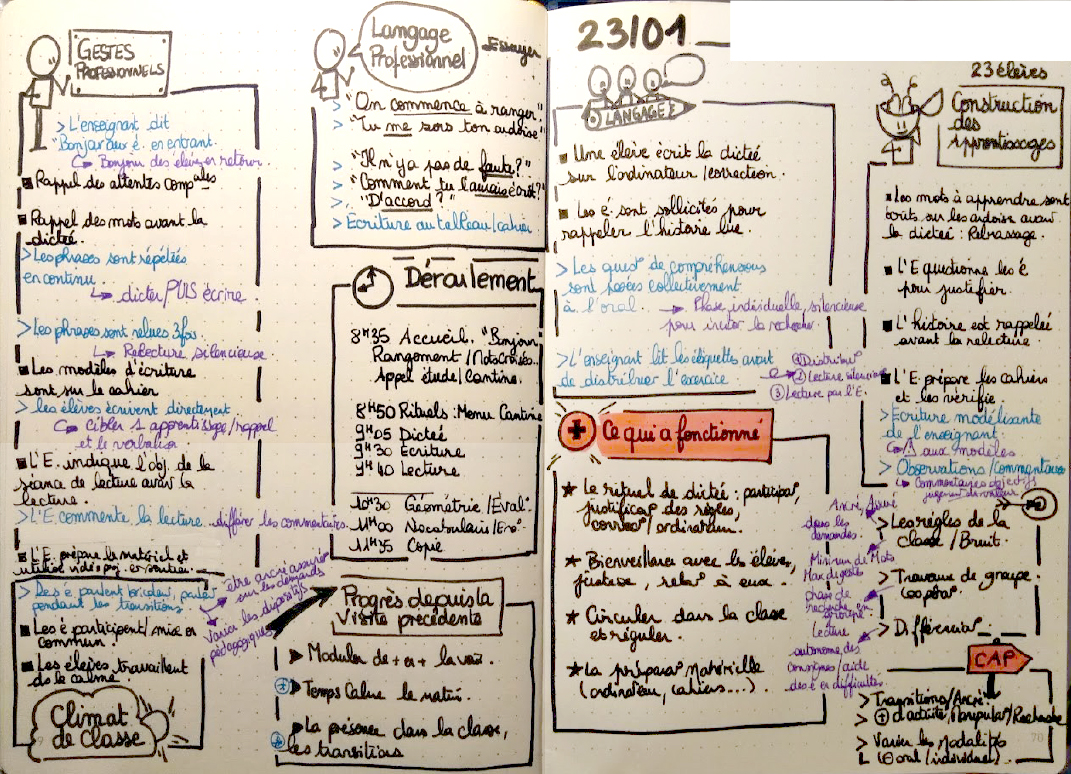 GESTES
PROFESSIONNELS
> L'enseignant dit
"Bonjour aux é. en entrant.
Bonjour des élèves en retour.
Rappel des attentes comp
Rappel des mots avant la
dictée.
> Les phrases sont répétées
en continu.
dicter PUIS écrire
> Les phrases sont relues 3 fois.
Relecture silencieuse.
Les modèles d'écriture
sont sur le cahier
> les élèves écrivent directement.
Cibler 1 apprentissage/rappel
et le verbaliser
L'E. indique l'obj. de la
séance de lecture avant la
lecture.
> L'E. commente la lecture. différer les commentaires.
L'E. prépare le matériel et
utilise vidéoproj. en soutien.
> Des é parlent
pendant les transitions.
être ancré assuré
sur les demandes
Varier les dispositifs
pédagogiques
Les é participent/mise en
commun.
Les élèves travaillent
ds le calme.
Climat
de Classe
Langage
Professionnel
Essayer
> "On commence à ranger."
> "Tu me sors ton ardoise"
> "Il n'y a pas de faute?"
> "Comment tu l'aurais écrit?"
> "D'accord?"
> Ecriture au tableau/cahier
Déroulement
8H35 Accueil. "Bonjour"
Rangement /
Appel étude/Cantine.
8H50 Rituels: Menu Cantine
9H05 Dictée
9H30 Ecriture
9H40 Lecture
10H30 Géométrie/Eval.
11H00 Vocabulaire/
11H35 Copie
Progrès depuis la
Visite précédente
Moduler de + en + la voix.
Temps Calme le matin.
La présence dans la classe,
les transitions
23/01
LANGAGE
Une élève écrit la dictée
sur l'ordinateur/correction.
Les é sont sollicités pour
rappeler l'histoire lue.
> Les quest° de compréhensions
sont posées collectivement
à l'oral. Phase individuelle, silencieuse
pour inciter la recherche.
> L'enseignant lit les étiquettes avant
de distribuer l'exercice
① Distribut°
② Lecture silencieuse
③ Lecture par l'E.
Ce qui a fonctionné
★ Le rituel de dictée : participat°,
justificat° des règles,
correct°/ordinateur.
★ Bienveillance avec les élèves,
justesse, relat° à eux.
★ Circuler dans la classe
et réguler.
★ La préparat° Matérielle
(ordinateur, cahiers...)
23 élèves
Construction
des
Apprentissages
Les mots à apprendre sont
écrits sur les ardoises avant
la dictée : Rebrassage.
L'E questionne les é
pour justifier.
L'histoire est rappelée
avant la relecture.
L'E. prépare les cahiers
et les vérifie.
> Ecriture modélisante
de l'enseignant.
⚠ aux modèles
> Observations/Commentaires
Commentaires objectifs
jugement de valeur
Ancré, Assuré
dans les
demandes.
> Les règles de la
classe / Bruit.
Minimum de Mots
Max de gestes
> Travaux de groupe.
Coopérat°.
phase de
recherche en
groupe
> Différenciat°.
Lecture
autonome des
consignes/aide
des é en difficultés.
CAP
> Transitions/Ancré.
> ⊕ d'activité, Manipulat°/Recherche
> Varier les Modalités
(⊕ oral/individuel).
70